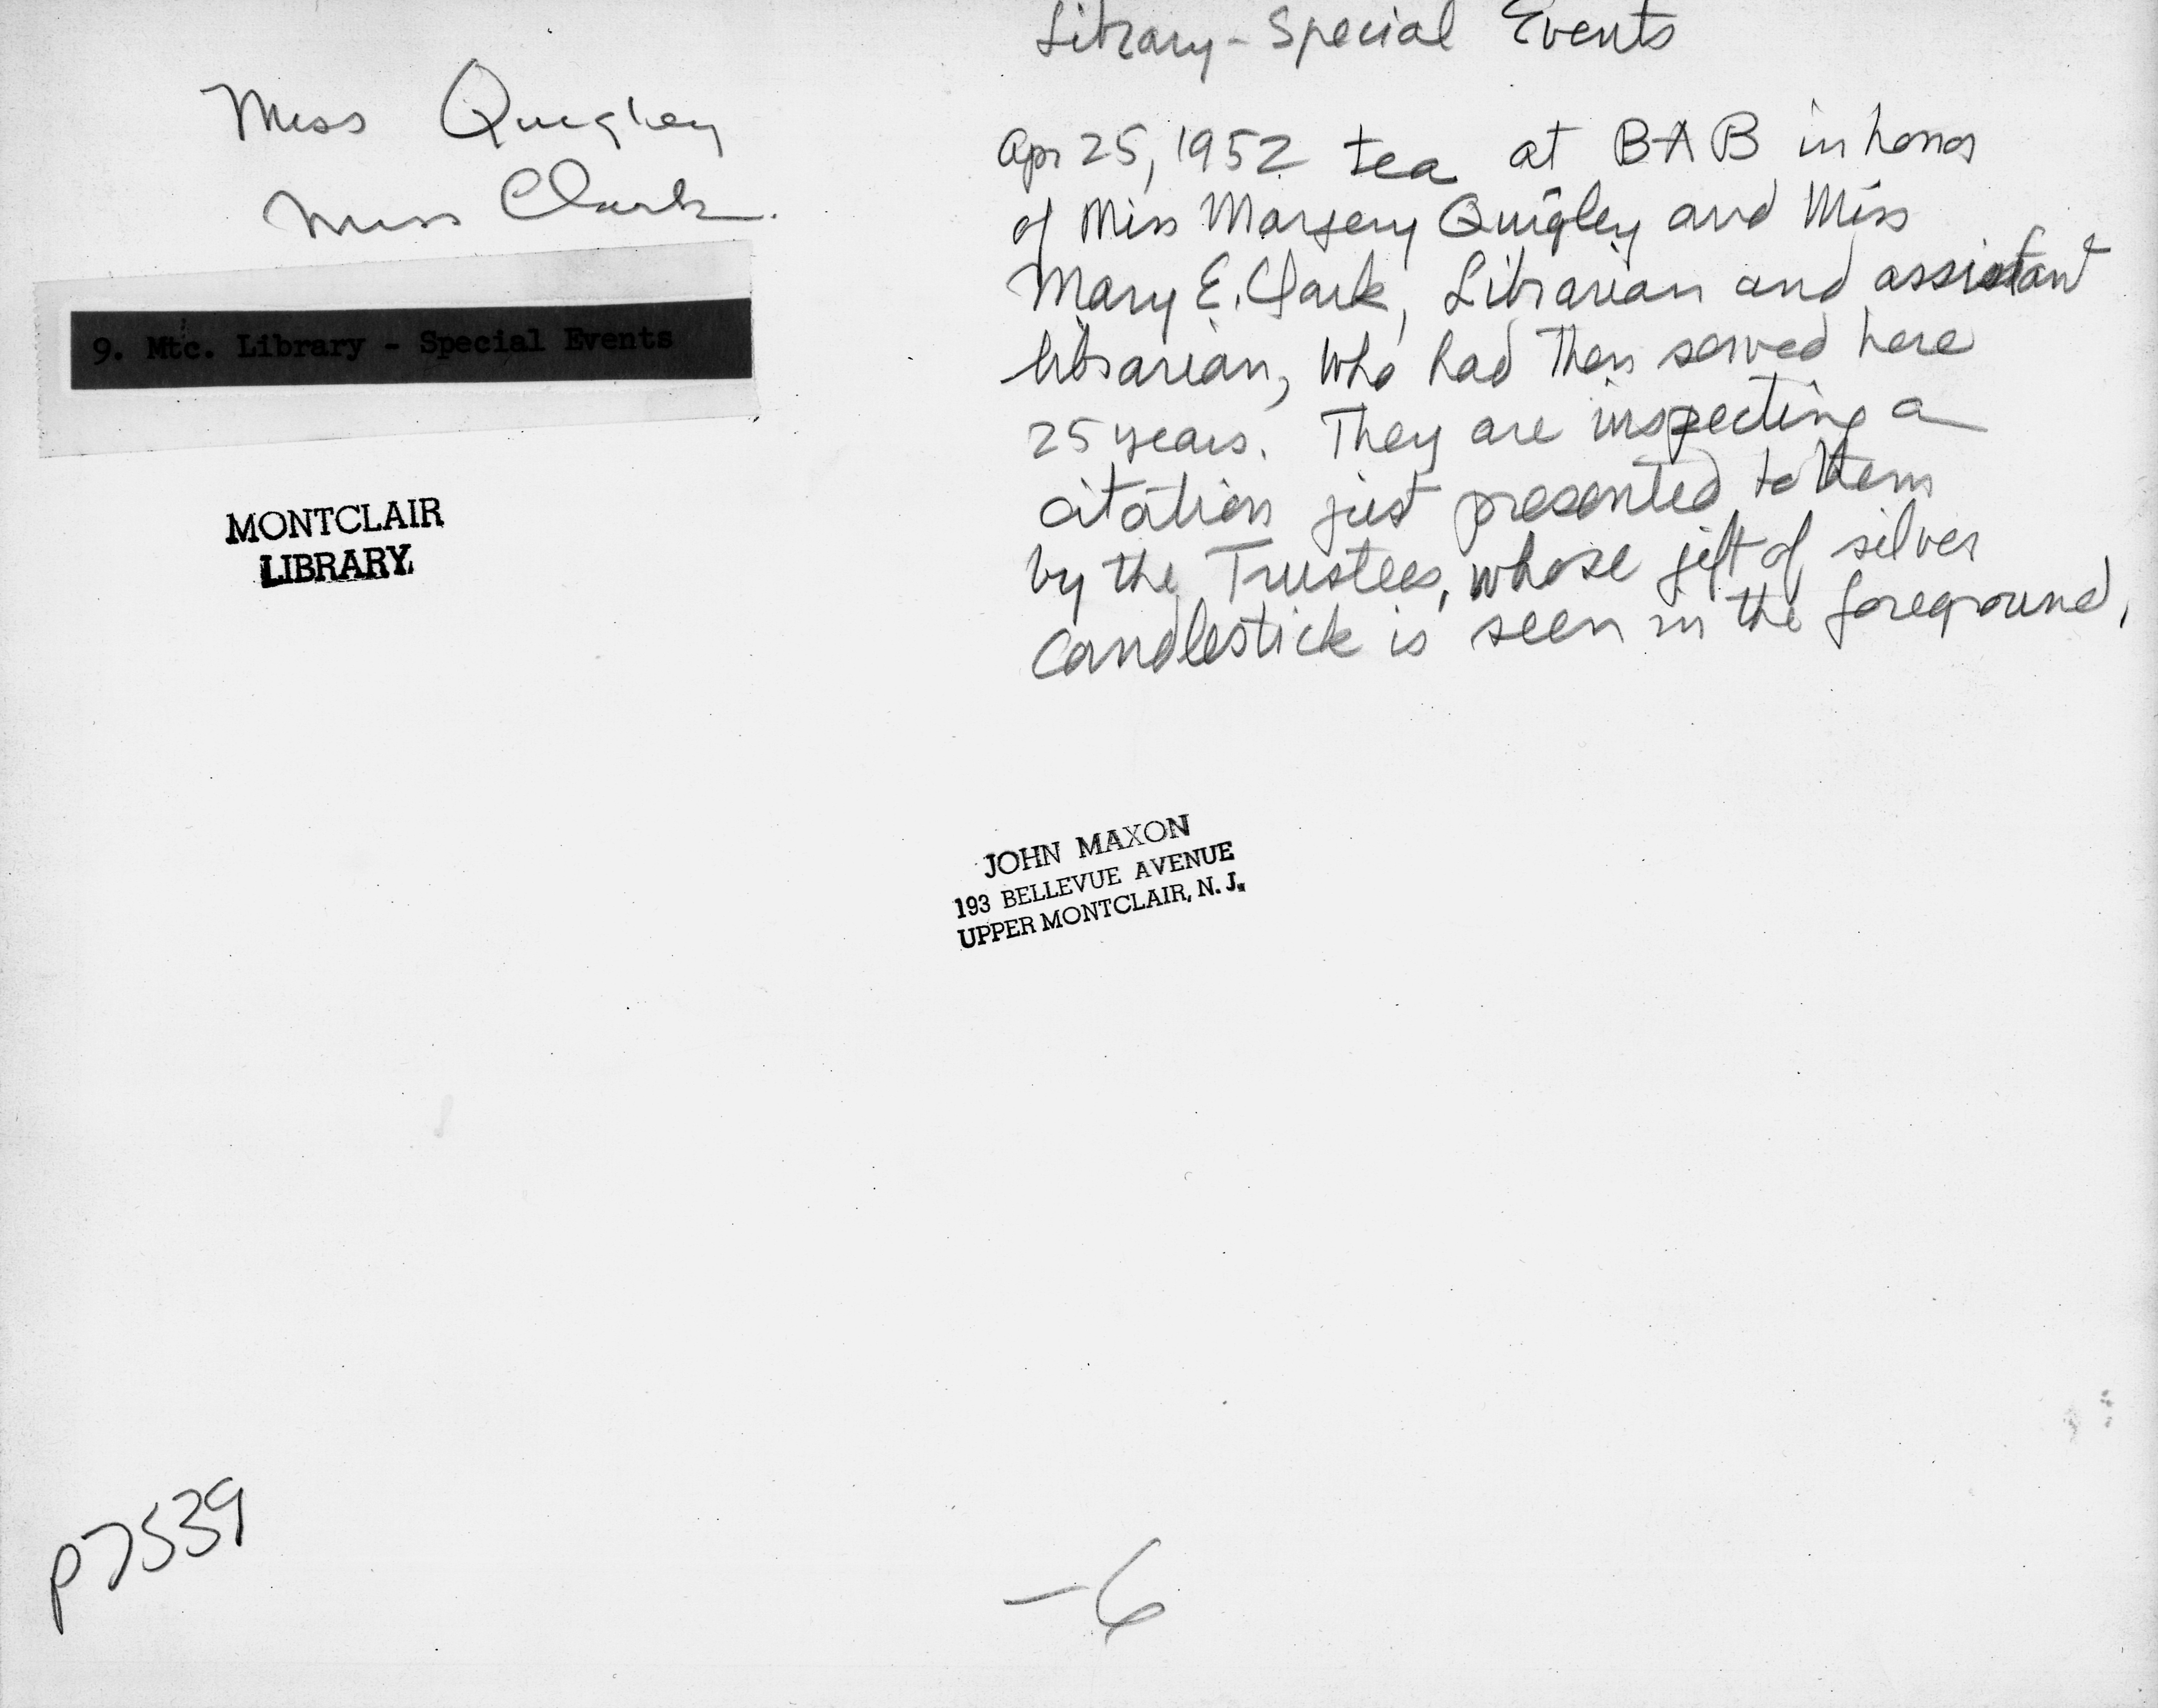 Library - Special Events
Miss Quigley
Miss Clark.
9. Mtc. Library - Special Events
MONTCLAIR
LIBRARY.
Apr 25, 1952 tea at BAB in honor
of Miss Margery Quigley and Miss
Mary E. Clark, Librarian and assistant
librarian, who had then served here
25 years. They are inspecting a
citation just presented to them
by the Trustees, whose gift of silver
candlestick is seen in the foreground.
JOHN MAXON
193 BELLEVUE AVENUE
UPPER MONTCLAIR, N. J.
p7539
-6